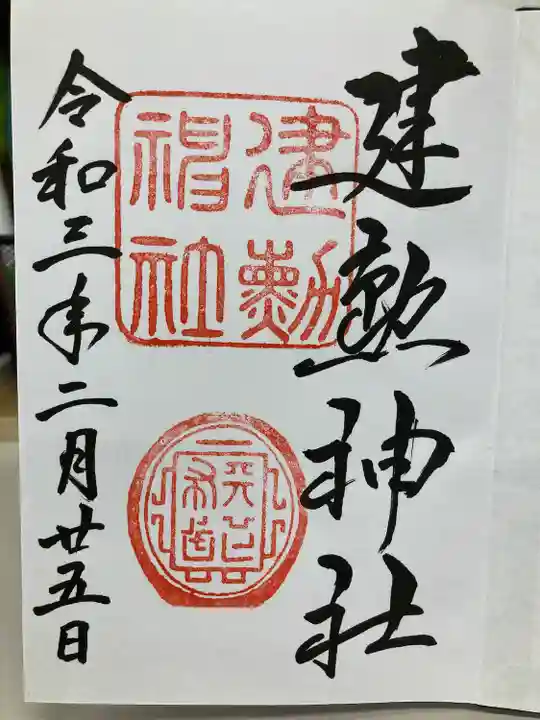 建勲神社
建勲
神社
天下布武
令和三年二月廿五日